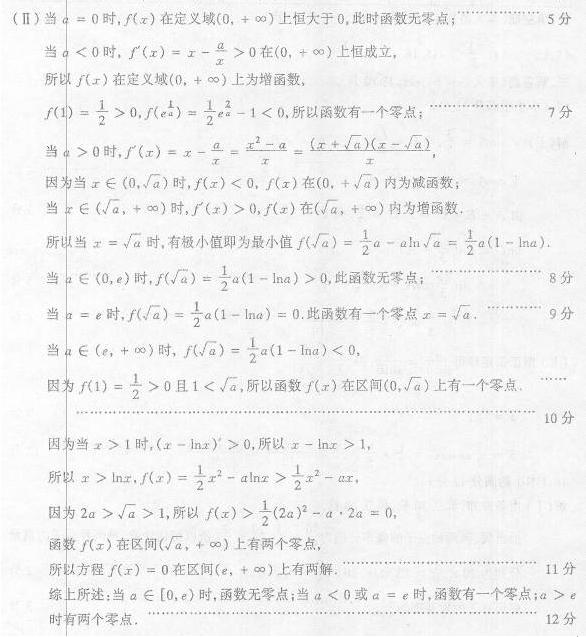 (Ⅱ)当 a = 0 时, f(x) 在定义域(0, + ∞) 上恒大于 0,此时函数无零点; ………… 5 分
当 a < 0 时, f′(x) = x - a/x > 0 在(0, + ∞) 上恒成立,
所以 f(x) 在定义域(0, + ∞) 上为增函数,
f(1) = 1/2 > 0, f(e^(1/a)) = 1/2 e^(2/a) - 1 < 0,所以函数有一个零点; ………… 7 分
当 a > 0 时, f′(x) = x - a/x = (x² - a)/x = (x + √a)(x - √a)/x,
因为当 x ∈ (0,√a) 时, f(x) < 0, f(x) 在(0, + √a) 内为减函数;
当 x ∈ (√a, + ∞) 时, f′(x) > 0, f(x) 在(√a, + ∞) 内为增函数.
所以当 x = √a 时,有极小值即为最小值 f(√a) = 1/2 a - aln√a = 1/2 a(1 - lna).
当 a ∈ (0,e) 时, f(√a) = 1/2 a(1 - lna) > 0,此函数无零点; ………… 8 分
当 a = e 时, f(√a) = 1/2 a(1 - lna) = 0.此函数有一个零点 x = √a. ………… 9 分
当 a ∈ (e, + ∞) 时, f(√a) = 1/2 a(1 - lna) < 0,
因为 f(1) = 1/2 > 0 且 1 < √a,所以函数 f(x) 在区间(0,√a) 上有一个零点. ……
………… 10 分
因为当 x > 1 时,(x - lnx)′ > 0,所以 x - lnx > 1,
所以 x > lnx, f(x) = 1/2 x² - alnx > 1/2 x² - ax,
因为 2a > √a > 1,所以 f(x) > 1/2 (2a)² - a · 2a = 0,
函数 f(x) 在区间(√a, + ∞) 上有两个零点,
所以方程 f(x) = 0 在区间(e, + ∞) 上有两解. ………… 11 分
综上所述:当 a ∈ [0,e) 时,函数无零点;当 a < 0 或 a = e 时,函数有一个零点;a > e
时有两个零点. ………… 12 分